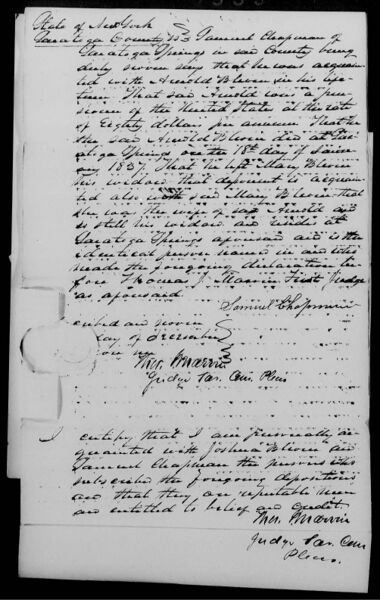 State of New York
Saratoga County SS Samuel Chapman of
Saratoga Springs in said County being
duly sworn says that he was acquain
ted with Arnold Blivin in his life
time That said Arnold was a pen
sioner of the United States at the rate
of Eighty dollars per annum That he
the said Arnold Blivin died at Sar
atoga Springs on the 18th day of Janu
ary 1837. That he left Mary Blivin
his widow that deponent is acquain
ted also with said Mary Blivin that
she was the wife of said Arnold and
is still his widow and resides at
Saratoga Springs aforesaid and is the
identical person named in and who
made the foregoing declaration be
fore Thomas J. Marvin First Judge
as aforesaid
Samuel Chapman
cribed and sworn
day of December
me
Tho. J. Marvin
Judge Sar. Com. Pleas
I certify that I am personally ac
quainted with Joshua Blivin and
Samuel Chapman the persons who
subscribed the foregoing depositions
and that they are reputable men
and entitled to belief and credit.
Tho. J. Marvin
Judge Sar. Com
Pleas.